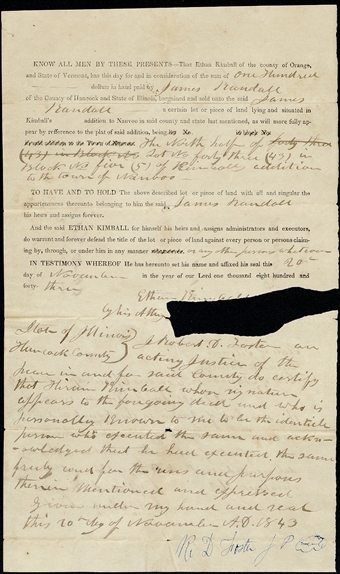 KNOW ALL MEN BY THESE PRESENTS—That Ethan Kimball of the county of Orange,
and State of Vermont, has this day for and in consideration of the sum of One Hundred
dollars in hand paid by James Randall
of the County of Hancock and State of Illinois, bargained and sold unto the said James
Randall a certain lot or piece of land lying and situated in
Kimball's addition to Nauvoo in said county and state last mentioned, as will more fully
appear by reference to the plat of said addition, being
The North half of forty three
(43) in Block No Lot No forty three (43) in
Block No five (5) of Kimballs addition
to the town of Nauvoo
TO HAVE AND TO HOLD The above described lot or piece of land with all and singular the
appurtenances thereunto belonging to him the said James Randall
his heirs and assigns forever.
And the said ETHAN KIMBALL for himself his heirs and assigns administrators and executors,
do warrant and forever defend the title of the lot or piece of land against every person or persons claim-
ing by, through, or under him in any manner or any other person whatsoever
IN TESTIMONY WHEREOF He has hereunto set his name and affixed his seal this 20th
day of November in the year of our Lord one thousand eight hundred and
forty- three
Ethan Kimball
by his Atty
State of Illinois
Hancock County
I Robert D. Foster an
acting Justice of the
peace in and for said County do certify
that Hiram Kimball whose signature
appears to the foregoing deed and who is
personally known to me to be the identicle
person who executed the same and ackno-
wledged that he had executed the same
freely and for the uses and purposes
therein mentioned and expressed
Given under my hand and seal
this 20 day of November A.D. 1843
R. D. Foster J P